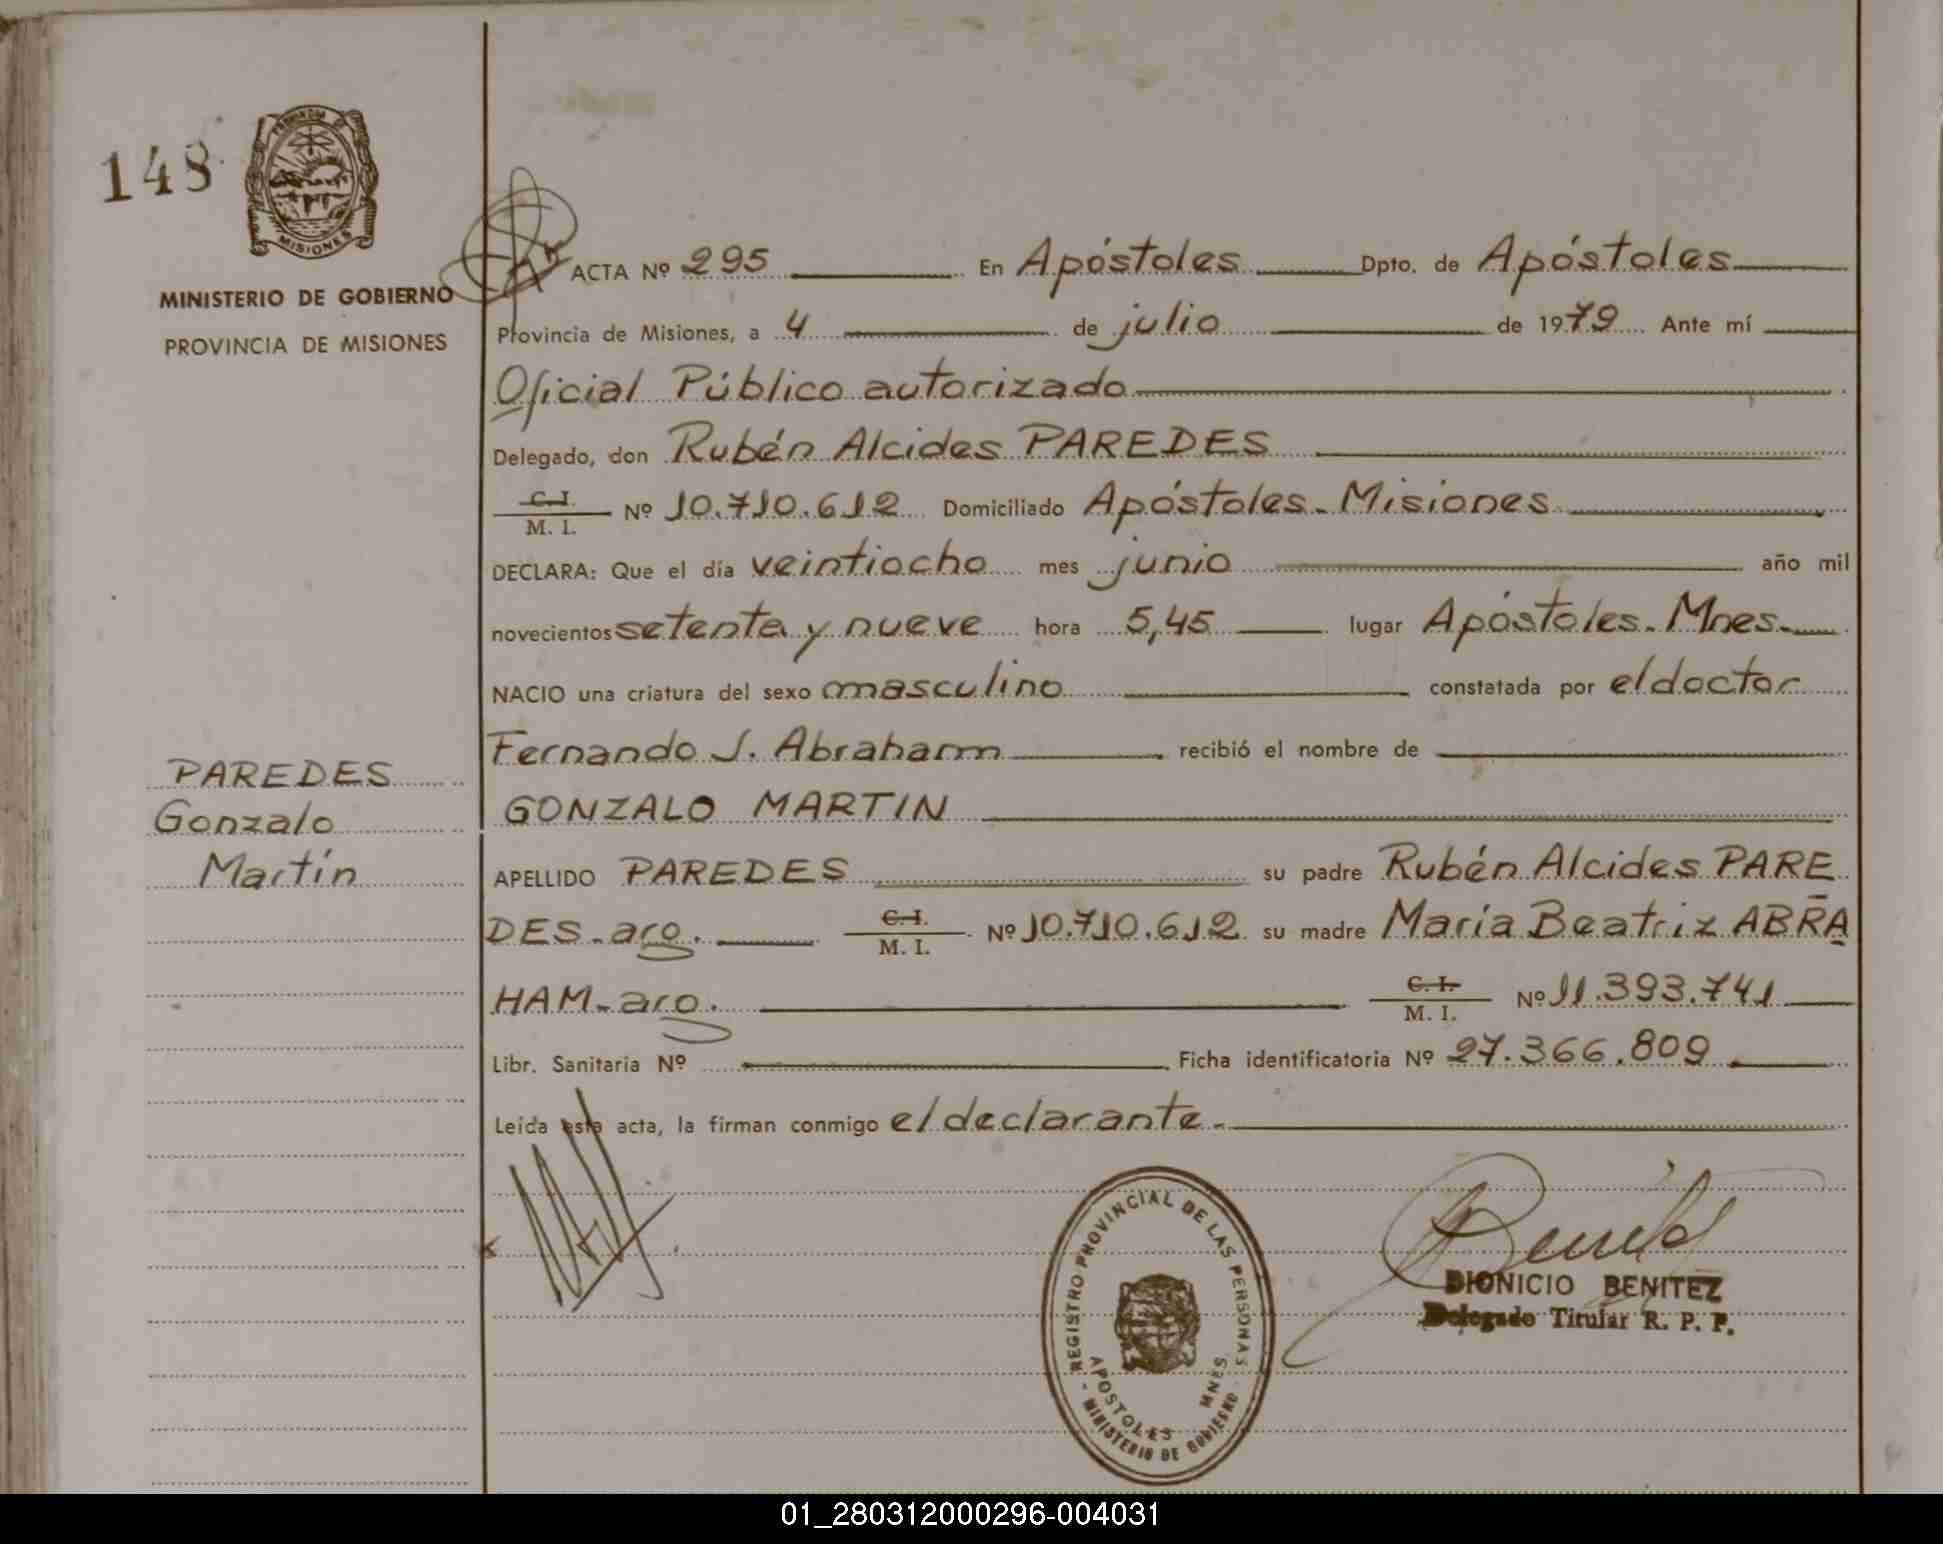 148
PROVINCIA DE
MISIONES
MINISTERIO DE GOBIERNO
PROVINCIA DE MISIONES
PAREDES
Gonzalo
Martín
ACTA Nº 295 En Apóstoles Dpto. de Apóstoles
Provincia de Misiones, a 4 de julio de 1979 Ante mí
Oficial Público autorizado
Delegado, don Rubén Alcides PAREDES
C. I.
M. I. Nº 10.710.612 Domiciliado Apóstoles - Misiones
DECLARA: Que el día veintiocho mes junio año mil
novecientos setenta y nueve hora 5,45 lugar Apóstoles - Mnes.
NACIO una criatura del sexo masculino constatada por el doctor
Fernando J. Abraham recibió el nombre de
GONZALO MARTIN
APELLIDO PAREDES su padre Rubén Alcides PARE
DES - aro. C. I.
M. I. Nº 10.710.612 su madre María Beatriz ABRA
HAM - aro. C. I.
M. I. Nº 11.393.741
Libr. Sanitaria Nº Ficha identificatoria Nº 27.366.809
Leída esta acta, la firman conmigo el declarante.
REGISTRO PROVINCIAL DE LAS PERSONAS
APOSTOLES MNES
- MINISTERIO DE GOBIERNO -
DIONICIO BENITEZ
Delegado Titular R. P. P.
01_280312000296-004031